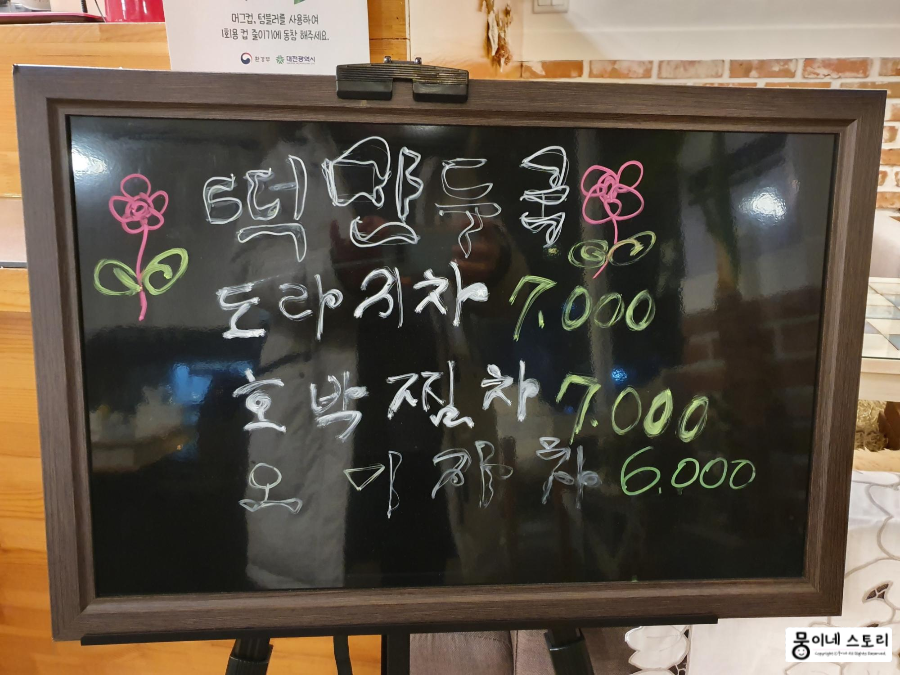 머그컵, 텀블러를 사용하여
1회용 컵 줄이기에 동참 해주세요.
환경부 대전광역시
도라지차 7.000
호박찜차 7.000
오미자차 6.000
뭉이네 스토리